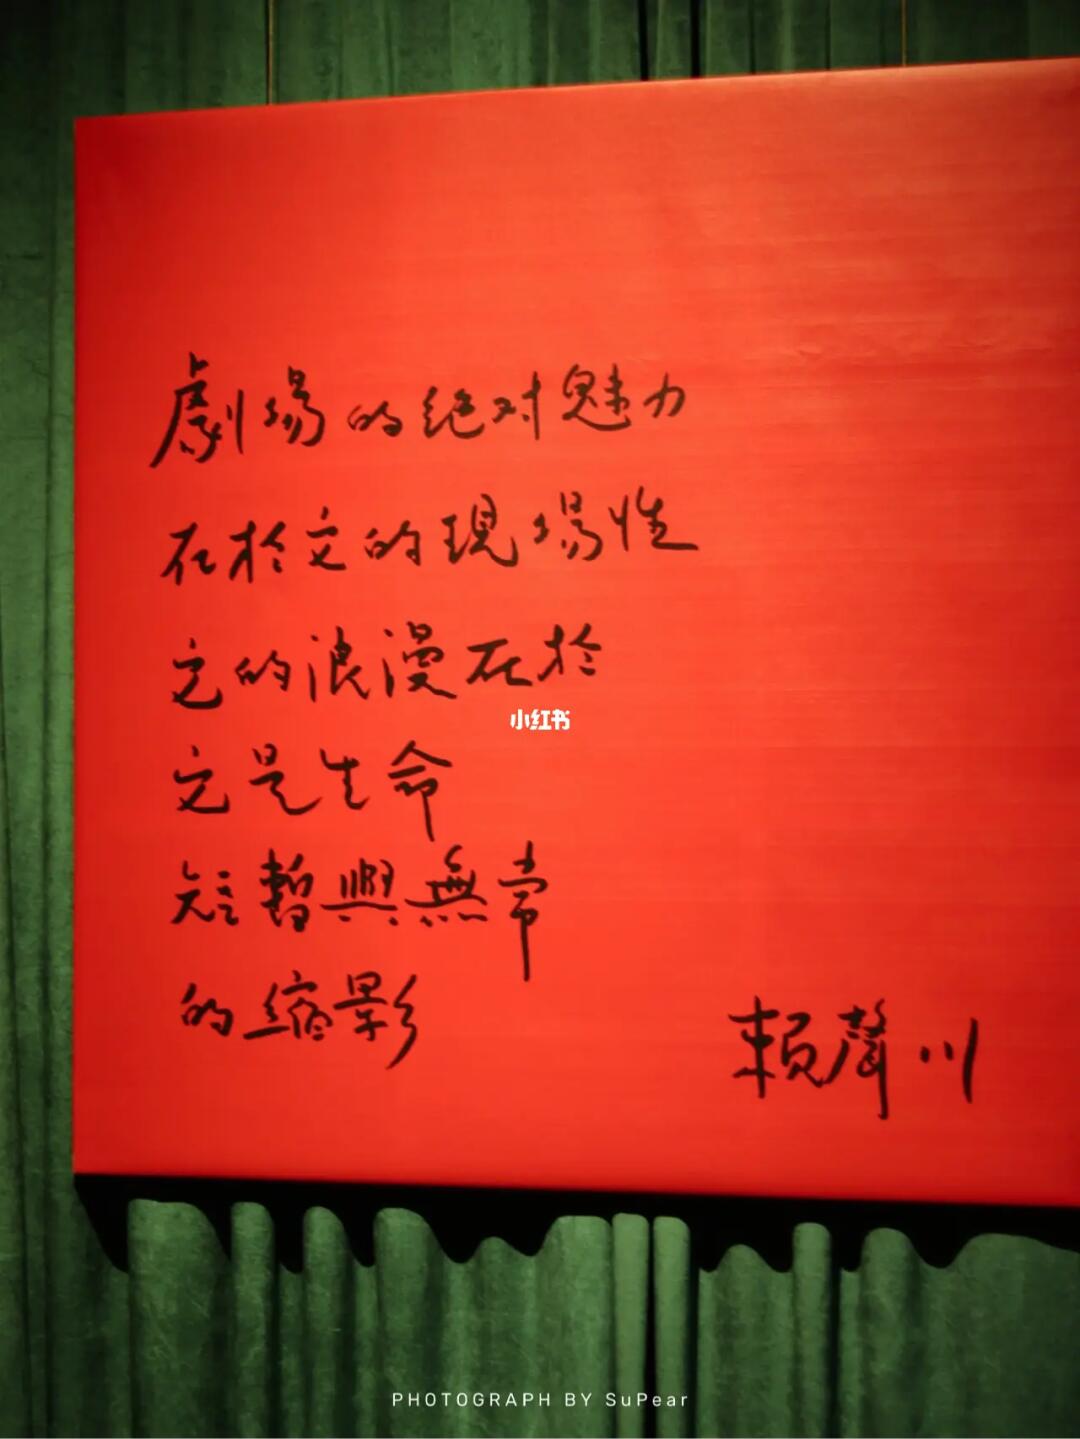 劇場的绝对魅力
在於它的現場性
它的浪漫在於
它是生命
短暫與無常
的縮影
賴聲川
小红书
PHOTOGRAPH BY SuPear